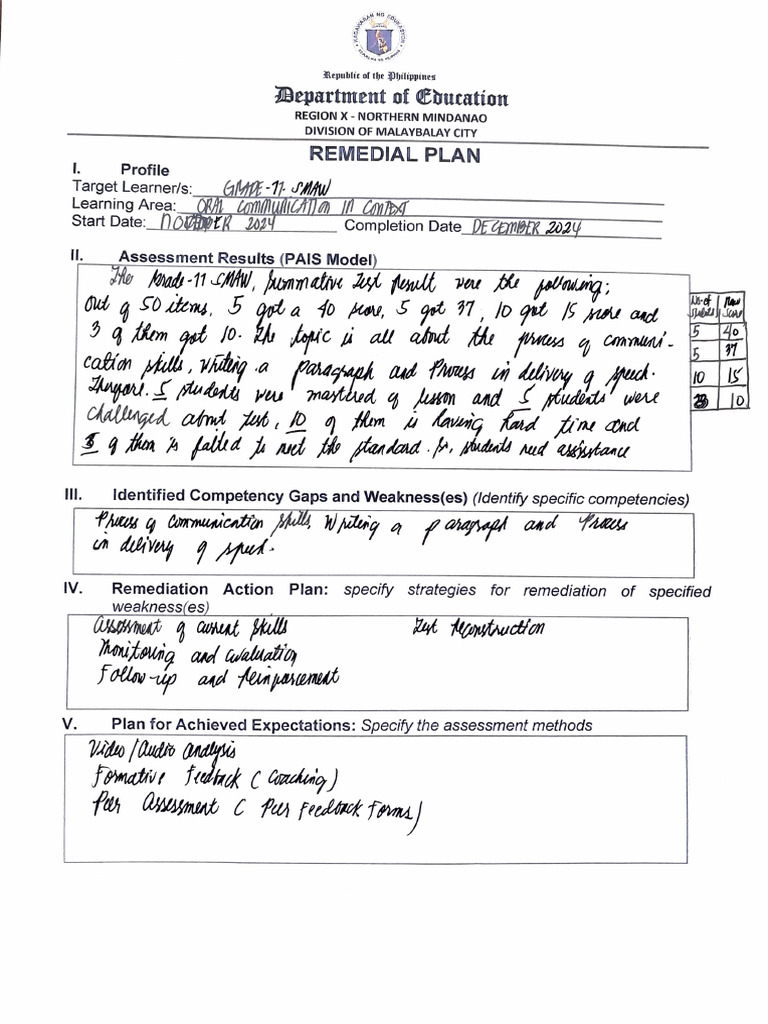 KAGAWARAN NG EDUKASYON
REPUBLIKA NG PILIPINAS
Republic of the Philippines
Department of Education
REGION X - NORTHERN MINDANAO
DIVISION OF MALAYBALAY CITY
REMEDIAL PLAN
I. Profile
Target Learner/s: GRADE-11 SMAW
Learning Area: ORAL COMMUNICATION IN CONTEXT
Start Date: NOVEMBER 2024 Completion Date DECEMBER 2024
II. Assessment Results (PAIS Model)
The Grade-11 SMAW, Summative Test Result were the following;
Out of 50 items, 5 got a 40 score, 5 got 37, 10 got 15 score and
3 of them got 10. The topic is all about the process of communi-
cation skills, writing a paragraph and Process in delivery of speech.
Therefore. 5 students were mastered of lesson and 5 students were
challenged about test, 10 of them is having hard time and
3 of them is failed to meet the standard. So, students need assistance
No. of Students Raw Score
5 40
5 37
10 15
3 10
III. Identified Competency Gaps and Weakness(es) (Identify specific competencies)
Process of Communication skills, Writing a paragraph and Process
in delivery of speech.
IV. Remediation Action Plan: specify strategies for remediation of specified
weakness(es)
Assessment of current skills Test Reconstruction
Monitoring and evaluation
Follow-up and Reinforcement
V. Plan for Achieved Expectations: Specify the assessment methods
Video/Audio analysis
Formative Feedback (Coaching)
Peer Assessment (Peer Feedback Forms)